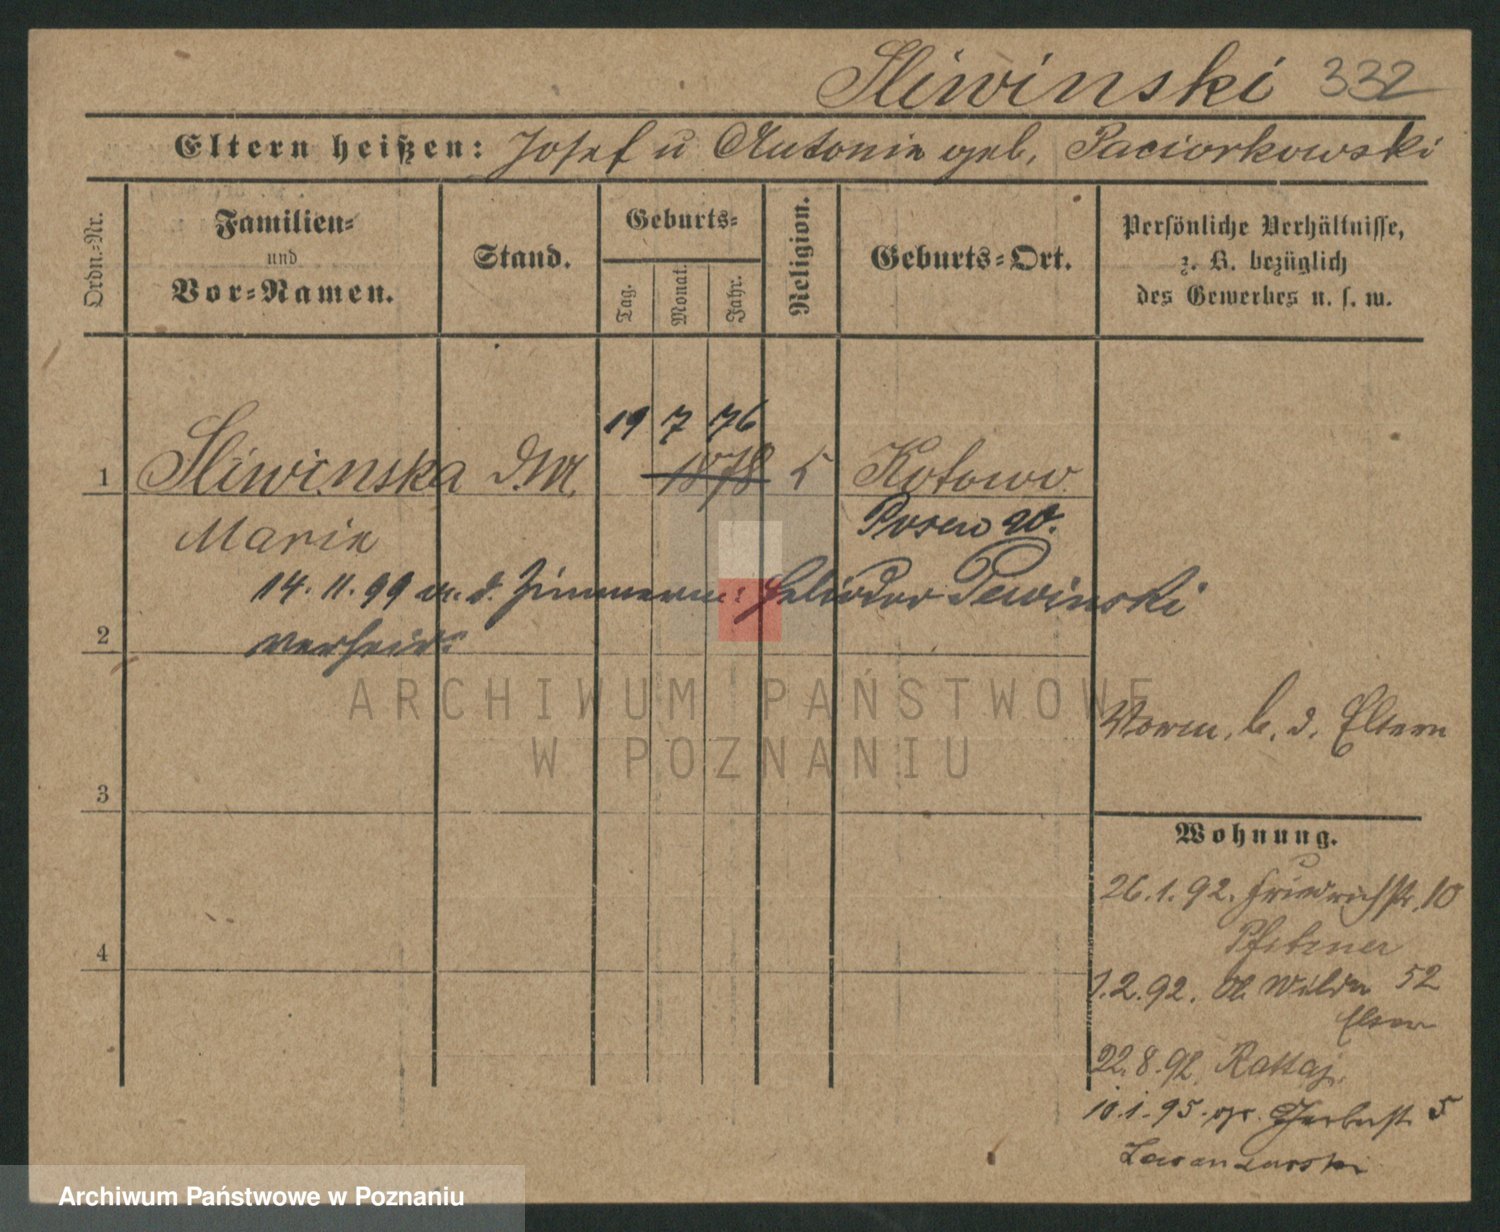 Sliwinski 332
Eltern heißen: Josef u Antonie geb. Paciorkowski
Ordn.-Nr.
Familien-
und
Vor-Namen.
Stand.
Geburts-
Tag.
Monat.
Jahr.
Religion.
Geburts-Ort.
Persönliche Verhältnisse,
z. B. bezüglich
des Gewerbes u. s. w.
19 7 76
1 Sliwinska D.M. 1878 Kotowo
Marie Posen W.
14. 11. 99 m. d. Zimmerm: Heliodor Pewinski
2 verheir.
Vorm. b. d. Eltern
3
Wohnung.
26.1.92. Friedrichstr. 10
Pfitzner
4
1.2.92. Ob Wilda 52
Eltern
22.8.92. Rattaj.
10.1.95. gr. Gerberst. 5
ARCHIWUM PAŃSTWOWE
W POZNANIU
Archiwum Państwowe w Poznaniu